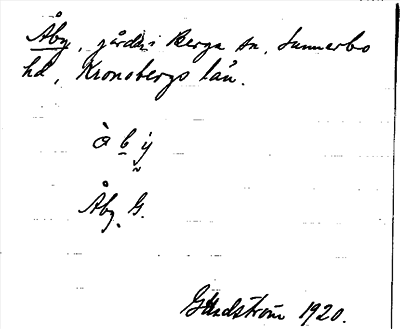 Åby, gård i Berga sn, Sunnerbo
hd, Kronobergs län.
å b y
Åby. G.
G Lindström 1920.